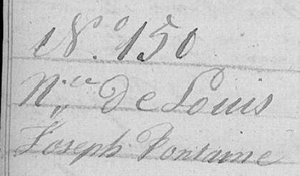 N.° 150
N.ce de Louis
Joseph Fontaine